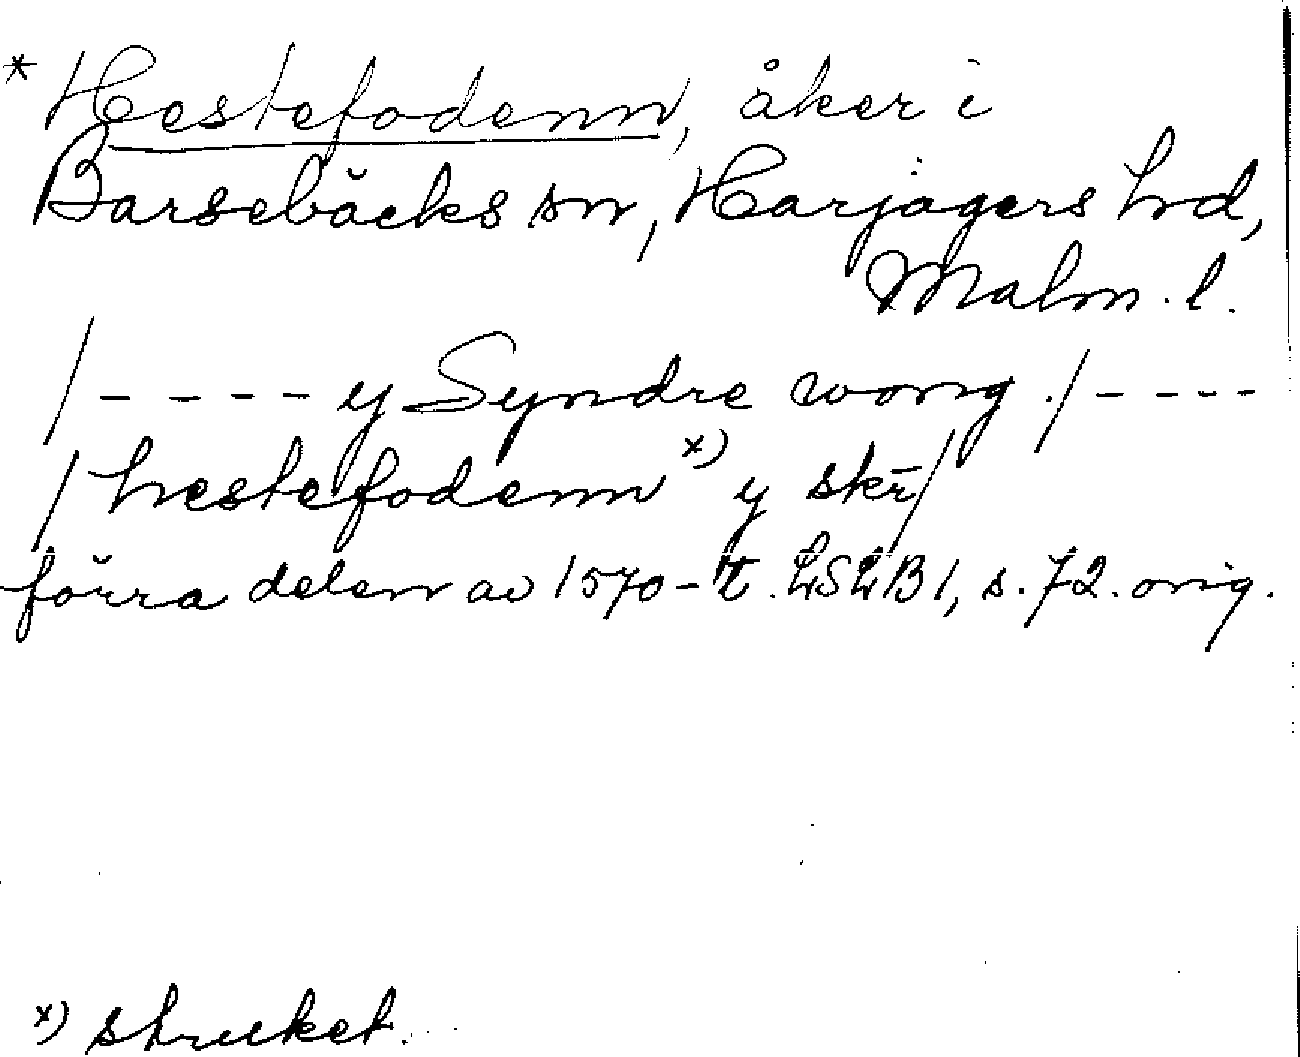 * Hestefodenn, åker i
Barsebäcks sn, Harjagers hd,
Malm. l.
/ - - - - - y Syndre wong ./ - - - -
/ hestefodenn x) y skr̄/
förra delen av 1570-t. LSLB 1, s. 72. orig.
x) struket.